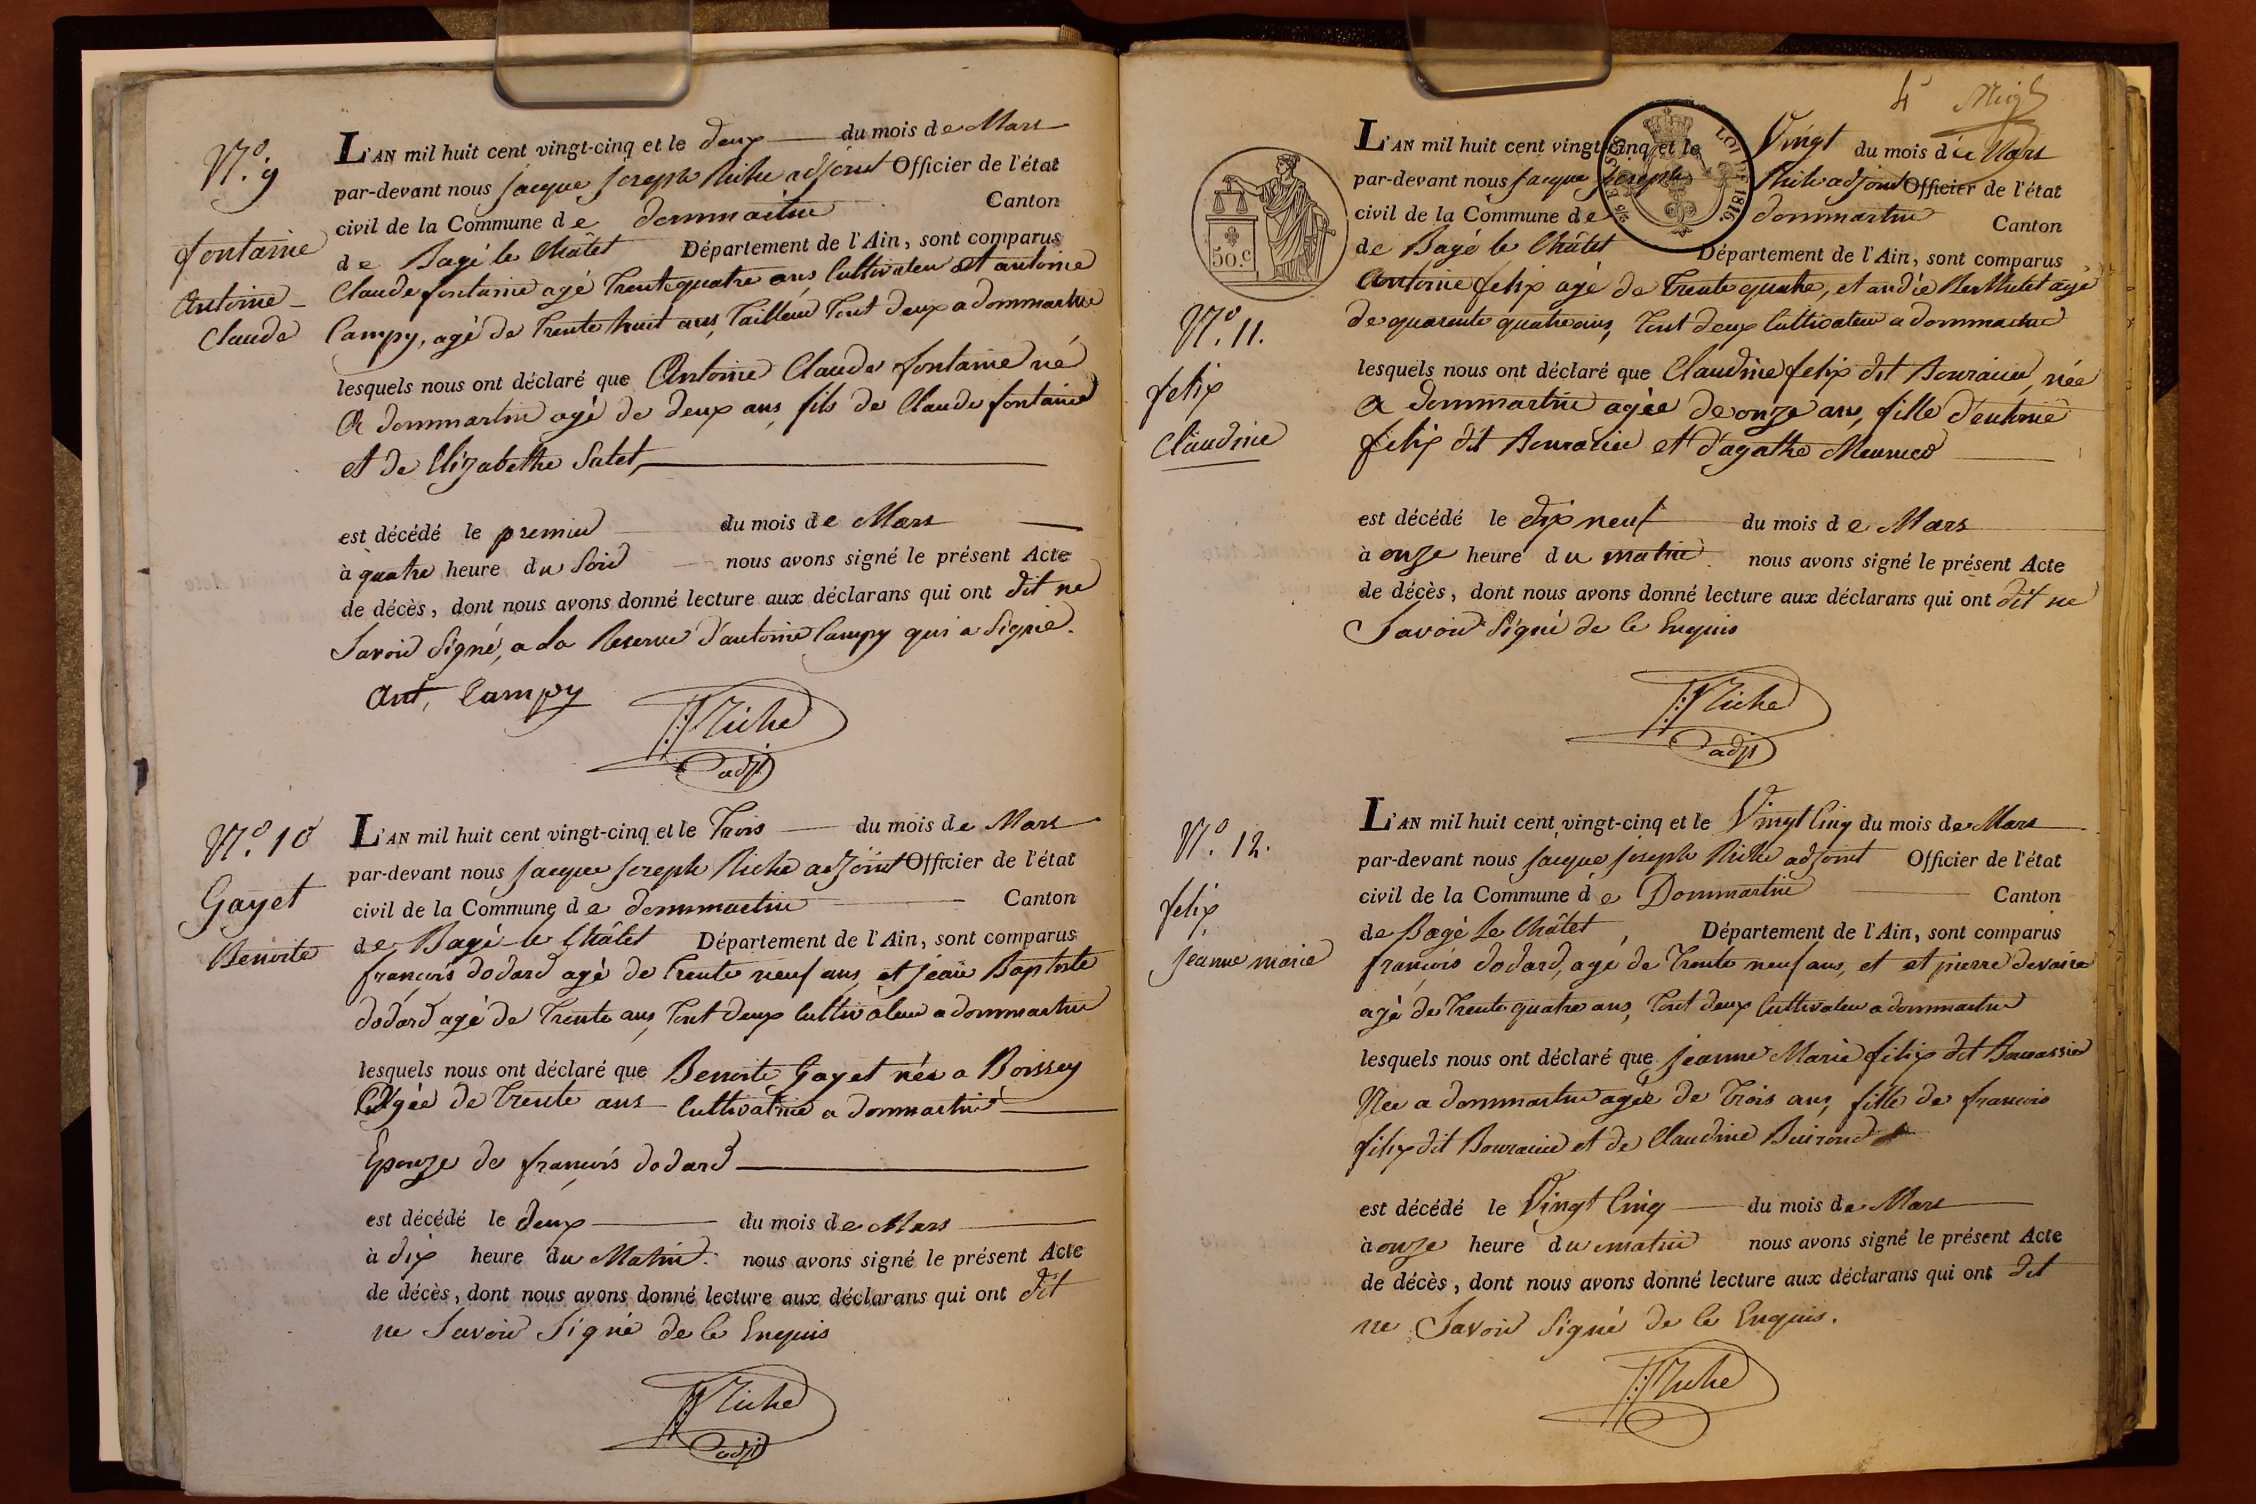 N.º 9
fontaine
Antoine
Claude
L'AN mil huit cent vingt-cinq et le deux du mois de Mars
par-devant nous jacque joseph Riche adjoint Officier de l'état
civil de la Commune de dommartin Canton
de Bagé le Châtel Département de l'Ain, sont comparus
Claude fontaine agé trente quatre ans Cultivateur et antoine
Campy, agé de trente huit ans, Tailleur tout deux a dommartin
lesquels nous ont déclaré que Antoine Claude fontaine né
a dommartin agé de deux ans, fils de Claude fontaine
et de Elizabethe Satet,
est décédé le premier du mois de Mars
à quatre heure du Soir nous avons signé le présent Acte
de décès, dont nous avons donné lecture aux déclarans qui ont dit ne
Savoir Signé, a la Reserve d'antoine Campy qui a Signé.
Ant, Campy
Riche
adjt
N.º 10
Gayet
Benoite
L'AN mil huit cent vingt-cinq et le Trois du mois de Mars
par-devant nous jacque joseph Riche adjoint Officier de l'état
civil de la Commune de dommartin Canton
de Bagé le Châtel Département de l'Ain, sont comparus
françois dodard agé de trente neuf ans, et jean Baptiste
dodard agé de Trente ans, tout deux Cultivateur a dommartin
lesquels nous ont déclaré que Benoite Gayet née a Boissey
Agée de trente ans Cultivatrice a dommartin
Epouze de françois dodard
est décédé le deux du mois de Mars
à dix heure du Matin. nous avons signé le présent Acte
de décès, dont nous avons donné lecture aux déclarans qui ont dit
ne Savoir Signé de ce Enquis
Riche
adjt
4
LOI DE 1816.
50.c
N.º 11.
felix
Claudine
L'AN mil huit cent vingt-cinq et le Vingt du mois de Mars
par-devant nous jacque joseph Riche adjoint Officier de l'état
civil de la Commune de dommartin Canton
de Bagé le Châtel Département de l'Ain, sont comparus
Antoine felix agé de Trente quatre, et andré Berthelet agé
de quarente quatre ans, tout deux Cultivateur a dommartin
lesquels nous ont déclaré que Claudine felix dit Bouracier, née
a dommartin agée de onze ans, fille d'entoine
felix dit Bouracier et d'agathe
est décédé le dix neuf du mois de Mars
à onze heure du matin nous avons signé le présent Acte
de décès, dont nous avons donné lecture aux déclarans qui ont dit ne
Savoir Signé de ce Enquis
Riche
adjt
N.º 12.
felix
jeanne marie
L'AN mil huit cent vingt-cinq et le Vingt Cinq du mois de Mars
par-devant nous jacque joseph Riche adjoint Officier de l'état
civil de la Commune de Dommartin Canton
de Bagé Le Châtel, Département de l'Ain, sont comparus
françois dodard, agé de Trente neuf ans, et et pierre devaire
agé de Trente quatre ans, tout deux Cultivateur a dommartin
lesquels nous ont déclaré que jeanne Marie felix dit Bourassier
Née a dommartin agée de Trois ans, fille de françois
felix dit Bouracier et de Claudine Buirond
est décédé le Vingt Cinq du mois de Mars
à onze heure du matin nous avons signé le présent Acte
de décès, dont nous avons donné lecture aux déclarans qui ont dit
ne Savoir Signé de ce Enquis.
Riche